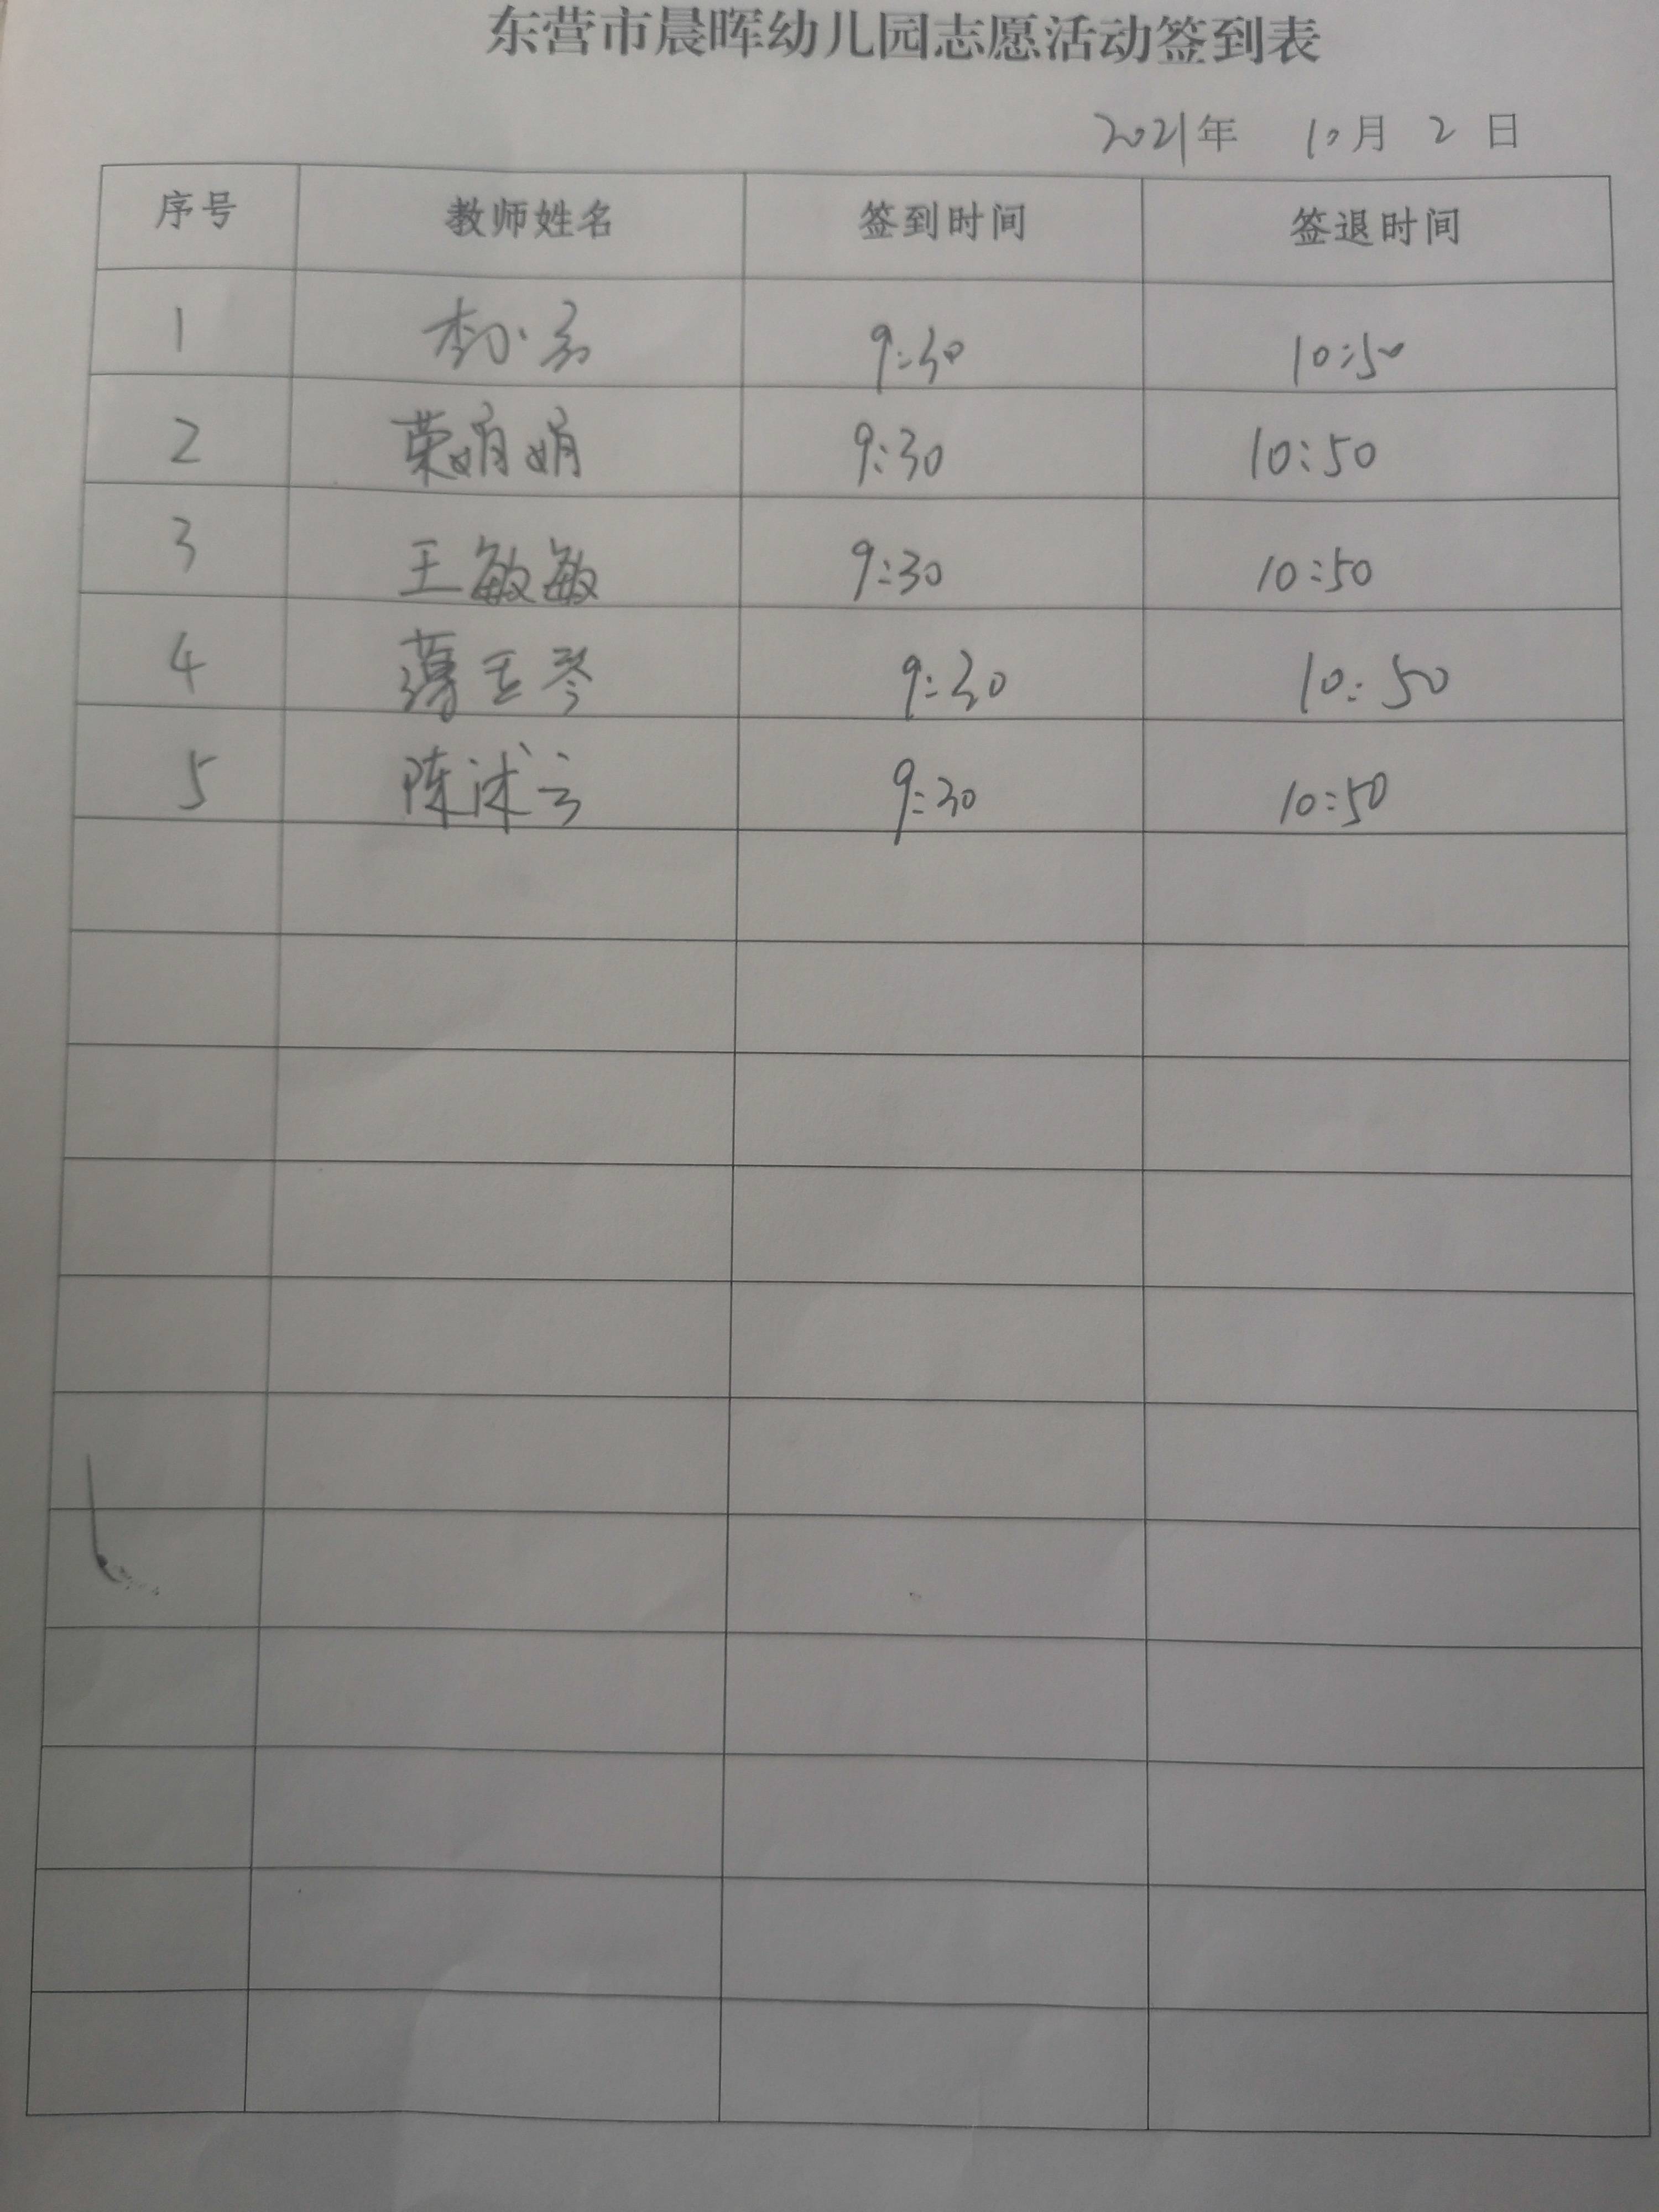 东营市晨晖幼儿园志愿活动签到表
2021年 10月 2 日
序号 教师姓名 签到时间 签退时间
1 9:30 10:50
2 荣娟娟 9:30 10:50
3 王敏敏 9:30 10:50
4 薄玉琴 9:30 10:50
5 陈述云 9:30 10:50